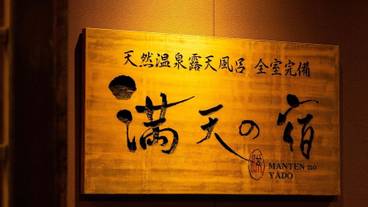 天然温泉露天風呂 全室完備
満天の宿
MANTEN no
YADO